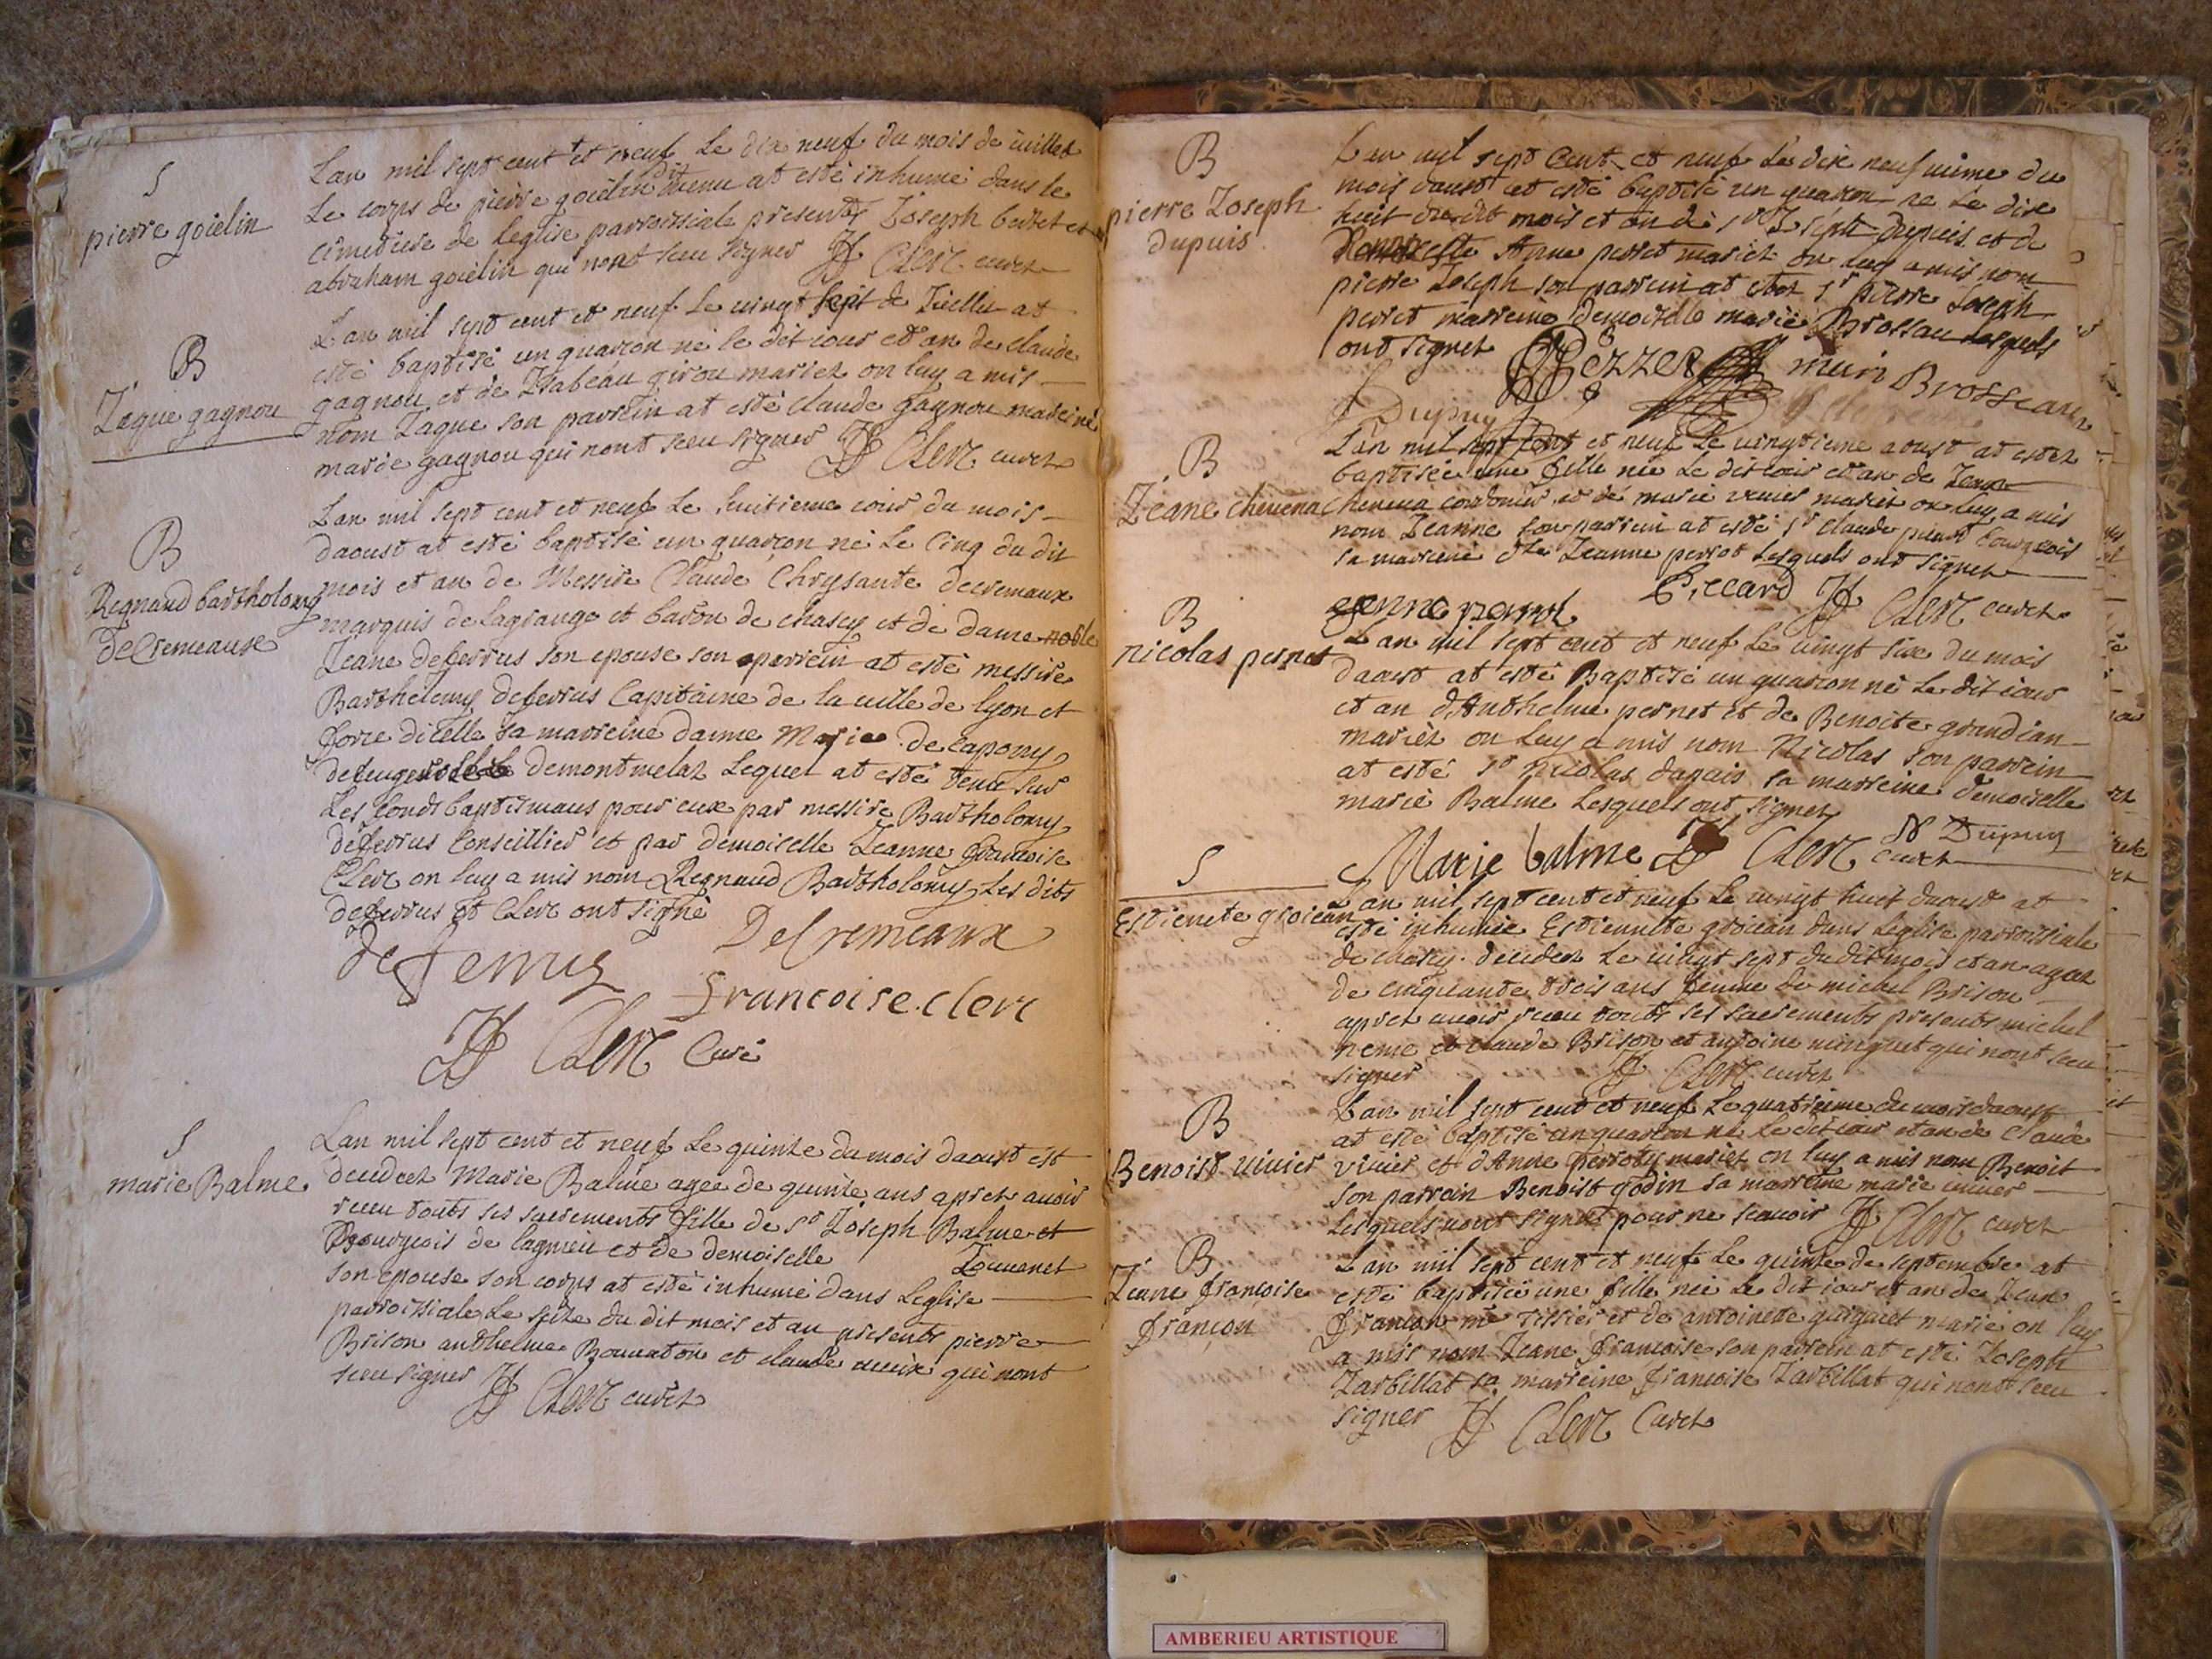 S
pierre goiëlin
Lan mil sept cent et neuf Le dix neuf du mois de iuillet
Le corps de pierre goiëlin at esté inhumé dans le
cimetiere de leglise parroissiale presents Joseph bertet et
abraham goiëlin qui nont sceu signer JF Clerc curet
B
Jaque gagnou
Lan mil sept cent et neuf Le vingt sept de Juillet at
esté baptisé un guarçon né le dit iour et an de claude
gagnou et de Isabeau girou mariez on luy a mis
nom Jaque son parrein at esté claude gagnou mareine
marie gagnou qui nont sceu signer JF Clerc curet
B
Regnaud bartholomy
deCremeause
Lan mil sept cent et neuf Le huitieme iour du mois
daoust at esté baptisé un guarçon né Le cinq du dit
mois et an de Messire Claude Chrysante decremaux
marquis de Lagrange et baron de chasey et de dame noble
Jeane deferrus son epouse son parrein at esté messire
Barthelemy deferrus Capitaine de la ville de lyon et
force dicelle sa marreine dame Marie de capony
demontmelas Lequel at esté tenu sur
Les fonds baptismaus pour eux par messire Bartholomy
deferrus Conseillier et par demoiselle Jeanne francoise
Clerc on luy a mis nom Regnaud Bartholomy Les dits
deferrus et Clerc ont signé
de ferrus DeCremeaux
francoise clerc
JF Clerc Curé
S
marie Balme
Lan mil sept cent et neuf Le quinze du mois daoust est
decedeez Marie Balme agee de quinze ans apret avoir
receu touts ses sacrements fille de sr Joseph Balme et
Bourgeois de lagnieu et de demoiselle Jouvenet
son epouse son corps at esté inhumé dans Leglise
parroissiale Le seize du dit mois et an presents pierre
Brison anthelme Bonnaton et claude qui nont
sceu signer JF Clerc curet
B
pierre Joseph
dupuis
Lan mil sept cent et neuf Le dix neufvieme du
mois daoust at esté baptisé un guarcon ne Le dix
huit du dit mois et an de sr Joseph dupuis et de
Demoiselle Anne perret mariez on luy a mis nom
pierre Joseph son parrein at estez sr pierre Joseph
perret marreine demoiselle marie Brossau Lesquels
ont signet
PEZZER mari Brosseau
Dupuy
B
Jeane chevena
Lan mil sept cent et neuf Le vingtieme aoust at estez
baptisée une fille née Le dit iour et an de Jean
chevena cordonier et de marie mariez on luy a mis
nom Jeanne son parrein at esté sr claude bourgeois
sa marreine dlle Jeanne perrot Lesquels ont signet
Jenne perrot Piccard JF Clerc curet
B
nicolas pernet
Lan mil sept cent et neuf Le vingt six du mois
daoust at esté Baptisé un guarcon né Le dit iour
et an dAnthelme pernet et de Benoite grandian
mariez on luy a mis nom Nicolas son parrein
at esté sr nicolas dupuis sa marreine demoiselle
marie Balme Lesquels ont signez
Marie balme JF Clerc curet N Dupuy
S
Estienete groiean
Lan mil sept cent et neuf Le vingt huit daoust at
esté inhumée Estiennette groiean dans Leglise parroissiale
de chasey decedez Le vingt sept du dit mois et an ageez
de cinquante trois ans femme de michel Brison
apret avoir receu touts ses sacrements presents michel
neme et claude Brison et antoine minguet qui nont sceu
signer JF Clerc curet
B
Benoist vivier
Lan mil sept cent et neuf Le quatrieme du mois daoust
at esté baptisé un guarcon né Le dit iour et an de claude
vivier et dAnne perroty mariez on luy a mis nom Benoit
son parrain Benoist godin sa marreine marie vivier
Lesquels nont signet pour ne scavoir JF Clerc curet
B
Jeane françoise
françon
Lan mil sept cent et neuf Le quinze de septembre at
esté baptisée une fille née Le dit iour et an de Jean
françon me Tissier et de antoinete guigaret marié on luy
a mis nom Jeane françoise son parrein at esté Joseph
Jarbillat sa marreine francoise Jarbillat qui nont sceu
signer JF Clerc Curet
AMBERIEU ARTISTIQUE